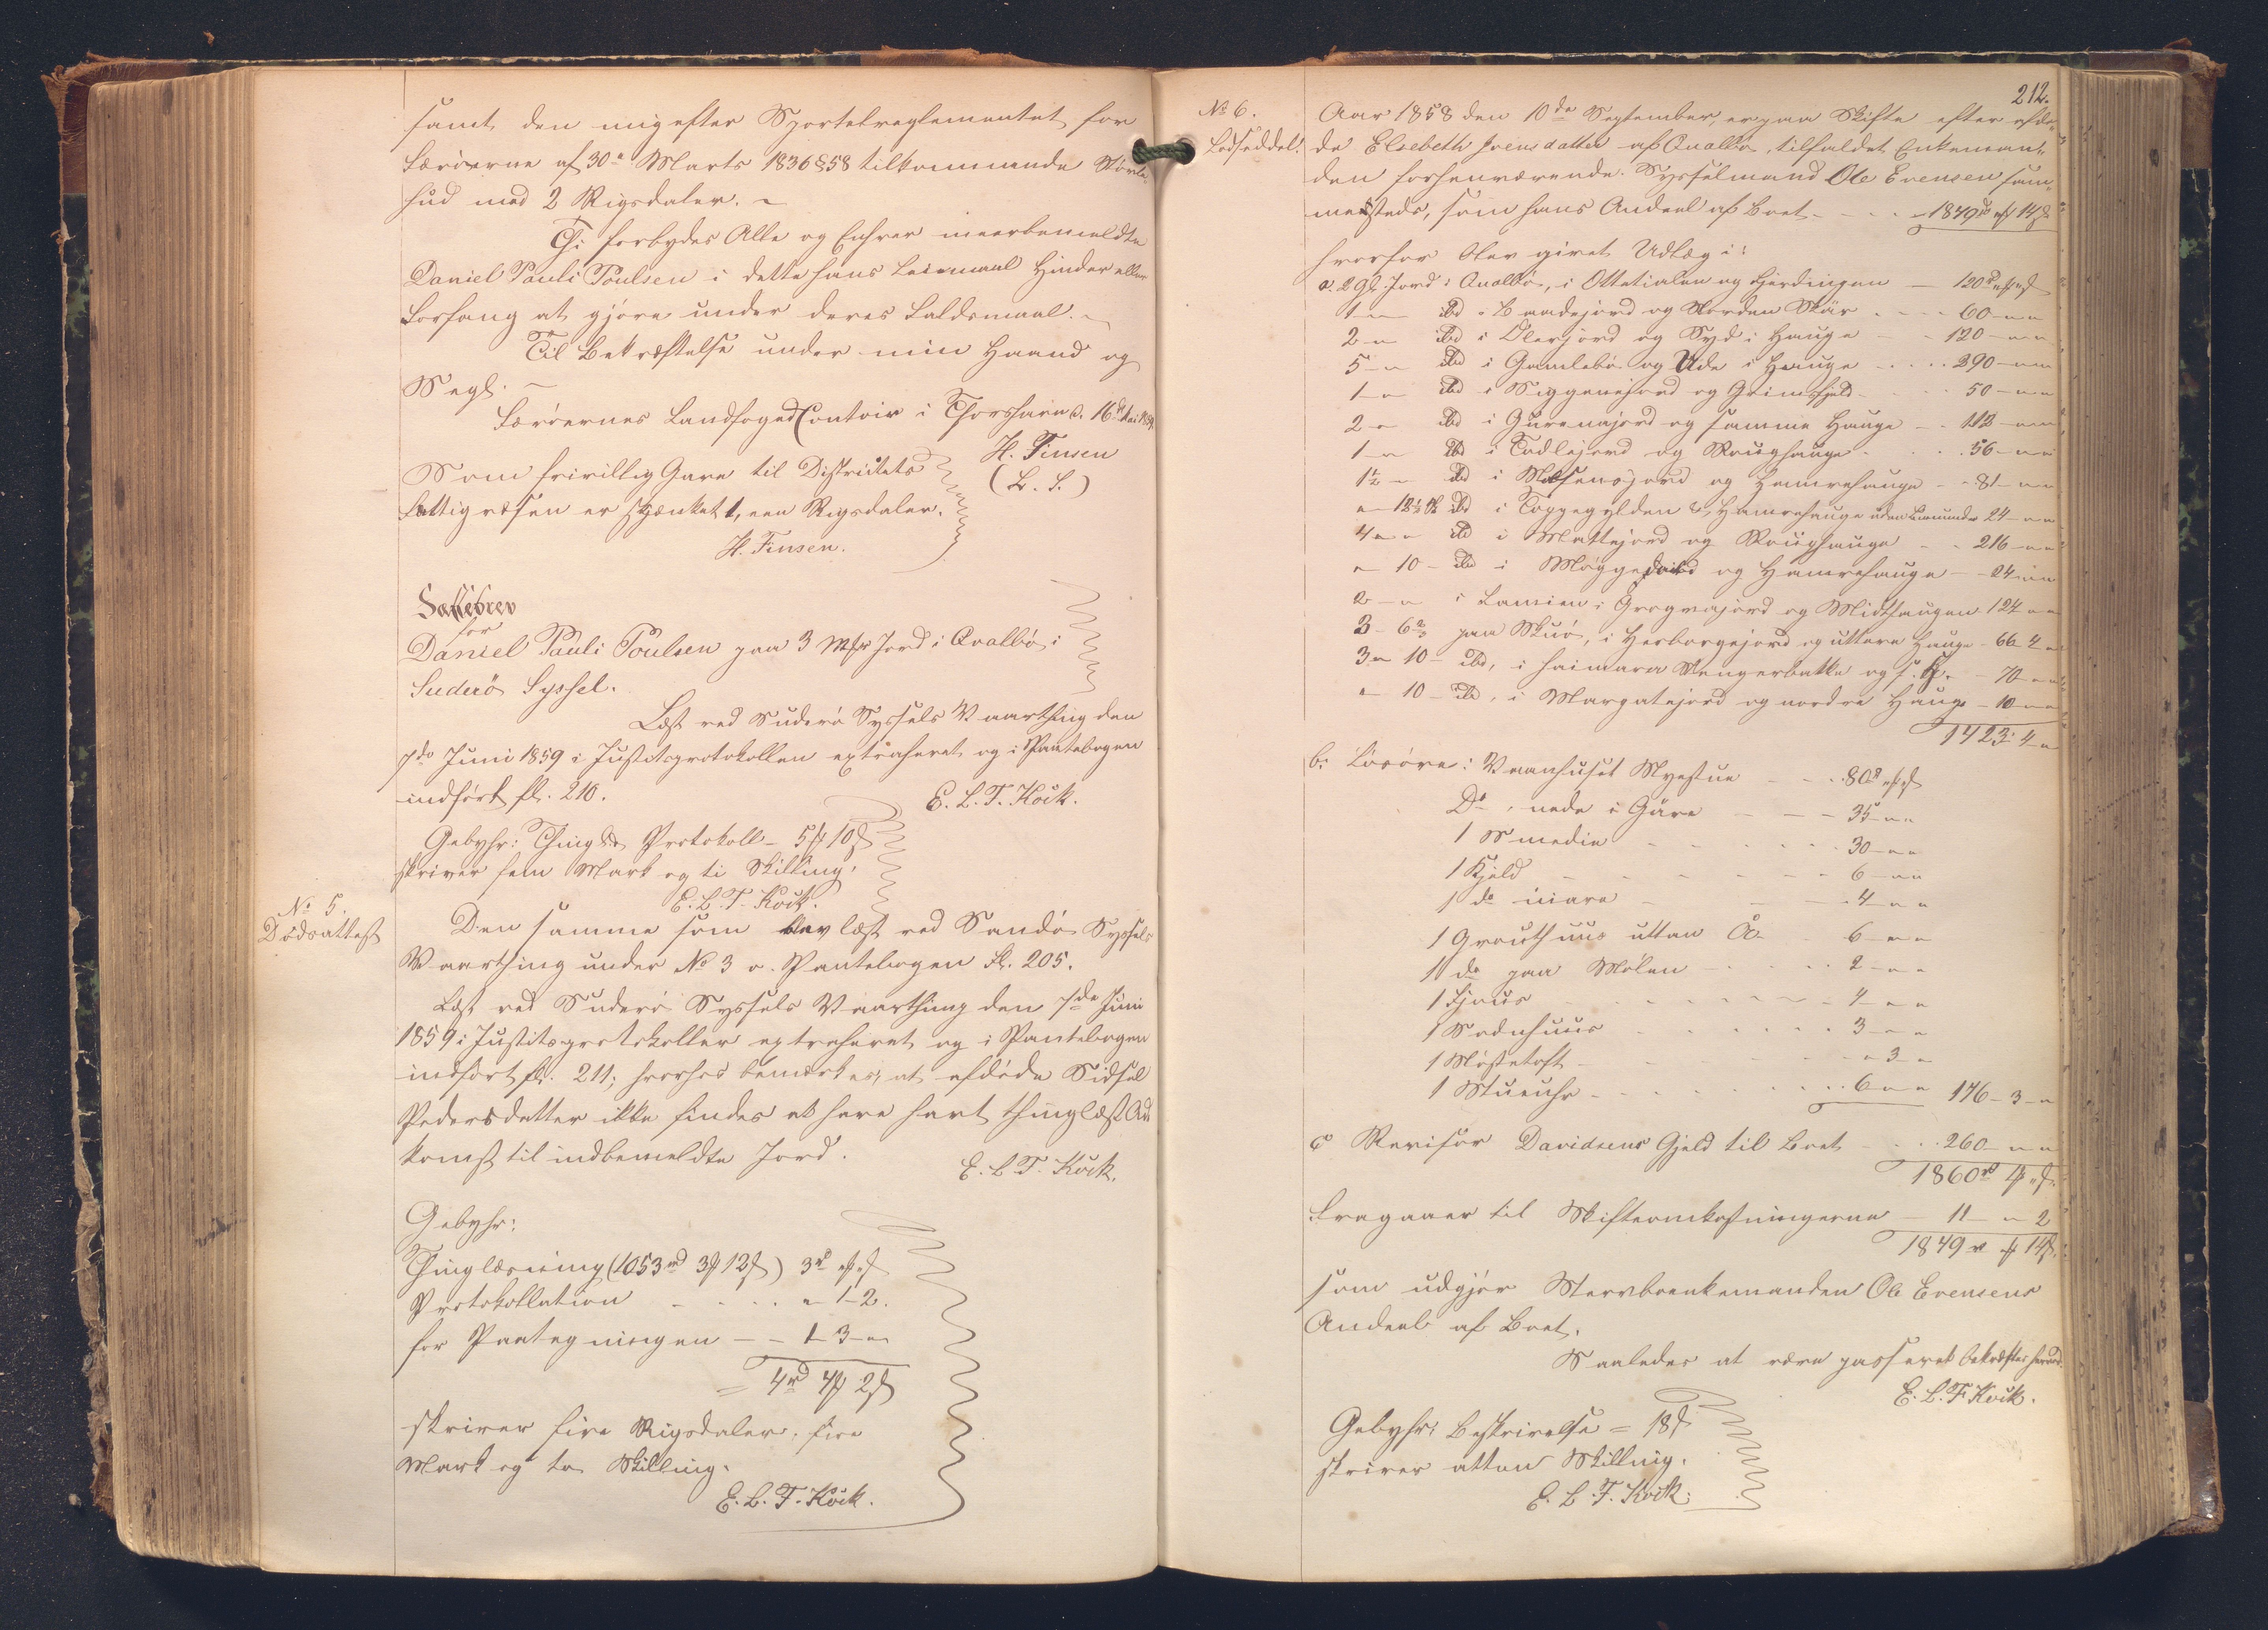 samt den mig efter Sportelreglementet for
Færöerne af 30te Marts 1836 § 58 tilkommende Störte
hud med 2 Rigsdaler. ~
Thi forbydes Alle og Enhver meerbemeldte
Daniel Pauli Poulsen i dette hans Leiemaal Hinder eller
Forfang at gjöre under deres Faldsmaal. ~
Til Bekræftelse under min Haand og
Segl. ~
Færöernes Landfoged Contoir i Thorshavn d. 16de Mai 1859
H. Finsen
(L. S.)
Som frivillig Gave til Districtets
Fattigvæsen er skjænket 1, een Rigsdaler.
H. Finsen.
Fæstebrev
for
Daniel Pauli Poulsen paa 3 Mk Jord i Qvalbö i
Suderö Syssel.
Læst ved Suderö Syssels Vaarthing den
7de Juni 1859 i Justitsprotokollen extraheret og i Pantebogen
indfört fl. 210.
E. L. T. Kock.
Gebyhr: Thingl & Protokoll - 5 # 10 ß
skriver fem Mark og ti Skilling.
E. L. T. Kock.
No 5.
Dödsattest
Den samme som blev læst ved Sandö Syssels
Vaarthing under No 3 o. Pantebogen Fl. 205.
Læst ved Suderö Syssels Vaarthing den 7de Juni
1859 i Justitsprotokollen extraheret og i Pantebogen
indfört fl. 211; hvorhos bemærkes, at afdöde Sidsel
Pedersdatter ikke findes at have havt thinglæst Ad
komst til indbemeldte Jord.
E. L. T. Kock.
Gebyhr:
Thinglæsning (1053 rd 3 # 12 ß) 3 rd " # " ß
Protokollation - - - - " 1 - 2.
for Paategningen - - 1 - 3 - "
= 4 rd 4 # 2 ß
skriver fire Rigsdaler, fire
Mark og to Skilling.
E. L. T. Kock.
212.
No 6.
Lodseddel.
Aar 1858 den 10de September, er paa Skifte efter afdö-
de Elsebeth Joensdatter af Qvalbö, tilfaldet Enkeman-
den forhenværende Sysselmand Ole Evensen sam-
mesteds, som hans Andeel af Boet - - - 1849 rd " # 14 ß
hvorfor blev givet Udlæg i:
a. 2 Gl. Jord i Qvalbö, i Ottetialen og Gjerdingen - 120 rd " # " ß
1 - " ibd i Baadejord og Norden Skär - - - 60 - " "
2 - " ibd i Olerjord og Syd i Hauge - - 120 - " "
5 - " ibd i Gamlebö og Ude i Hauge - - - 290 - " "
1 - " ibd i Siggenejord og Grimsfjeld - - 50 - " "
2 - " ibd i Gurenajord og samme Hauge - - 112 - " "
1 - " ibd i Todlejord og Roughauge - - - 56 - " "
1½ - " ibd i Næsensjord og Hamrehauge - - 81 - " "
" - 12½ ibd i Toppegylden & Hamrehauge uden 24 - " "
4 " - " ibd i Mattejord og Roughauge - - 216 - " "
" - 10 - ibd i Möggejord og Hamrehauge - - 24 - " "
2 - " i Famien i Gregrajord og Midthaugen 124 - " "
3 - 6⅔ paa Skuö, i Herborgejord og uttere Hauge - 66 - 4 "
3 " 10 - ibd, i heimara Vengerbakke og s. H. - 70 - " "
" - 10 - ibd, i Margatejord og nordre Hauge - 10 - " "
1423 - 4 - "
b. Lösöre: Vaanhuset Nyestue - - - 80 rd " # " ß
Do, nede i Gäre - - - 35 - " "
1 Smedie - - - - - 30 - " "
1 Hjeld - - - - - - 6 - " "
1 do mare - - - - 4 - " "
1 Grouthuus uttan Aa - 6 - " "
1 do paa Mölen - - - - 2 - " "
1 Fjous - - - - - - 4 - " "
1 Sodnhuus - - - - - 3 - " "
1 Möstetoft - - - - - " 3 - "
1 Stueuhr - - - - - - 6 - " " 176 - 3 - "
c Revisor Davidsens Gjeld til Boet - - 260 - " "
1860 rd 1 # " ß
Fragaaer til Skifteomkostningerne - 11 - " 2
1849 rd " # 14 ß.
som udgjör Stervboenkemanden Ole Evensens
Andeel af Boet.
Saaledes at være passeret bekræftes herved.
E. L. T. Kock.
Gebyhr: Beskrivelse = 18 ß
skriver atten Skilling.
E. L. T. Kock.